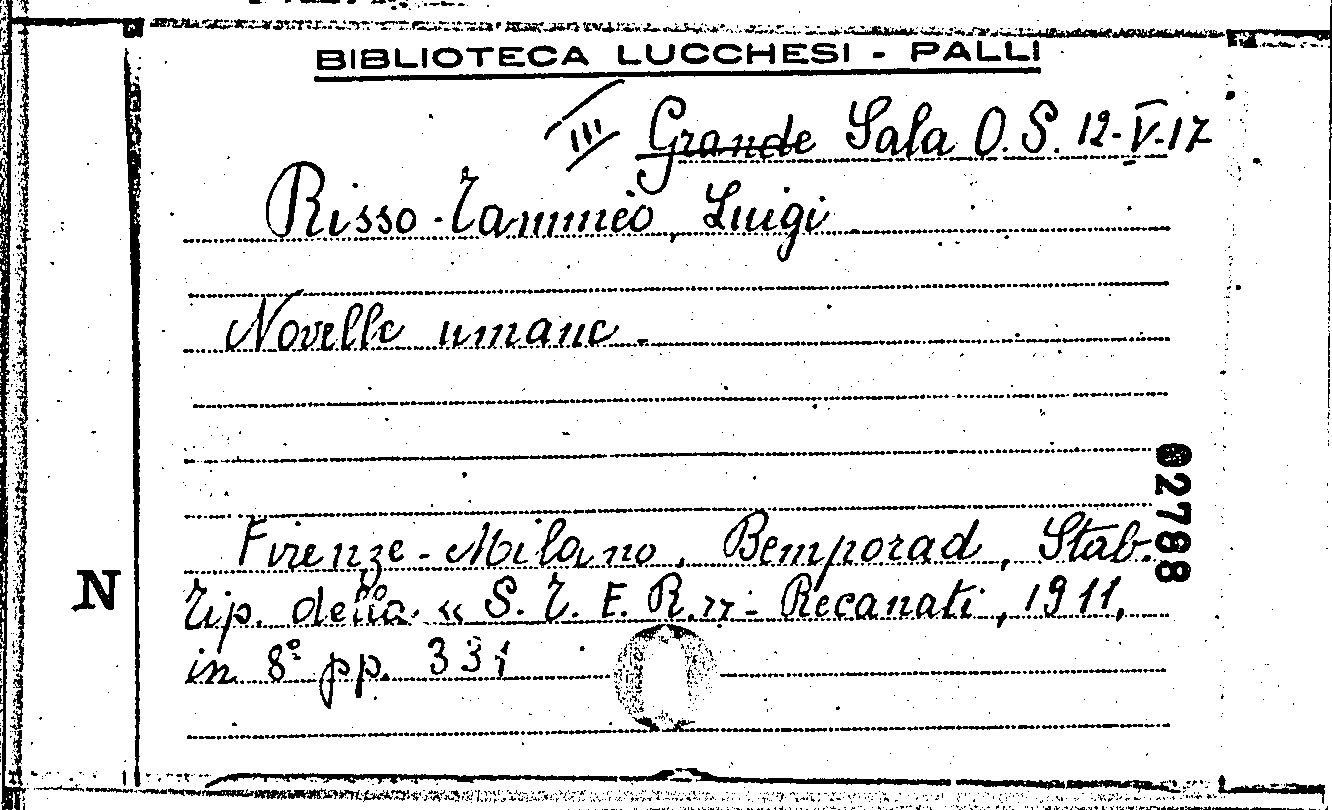 BIBLIOTECA LUCCHESI - PALLI
III Grande Sala O. S. 12-V-17
Risso-Tammeo, Luigi
Novelle umane.
Firenze-Milano, Bemporad, Stab.
Tip. della « S. T. E. R. » - Recanati, 1911,
in 8° pp. 331
N
02788